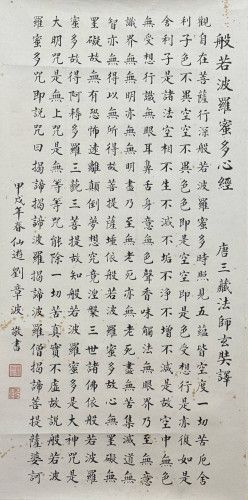 般若波羅蜜多心經 唐三藏法師玄奘譯
觀自在菩薩行深般若波羅蜜多時照見五蘊皆空度一切苦厄舍
利子色不異空空不異色色即是空空即是色受想行識亦復如是
舍利子是諸法空相不生不滅不垢不淨不增不減是故空中無色
無受想行識無眼耳鼻舌身意無色聲香味觸法無眼界乃至無意
識界無無明亦無無明盡乃至無老死亦無老死盡無苦集滅道無
智亦無得以無所得故菩提薩埵依般若波羅蜜多故心無罣礙無
罣礙故無有恐怖遠離顛倒夢想究竟涅槃三世諸佛依般若波羅
蜜多故得阿耨多羅三藐三菩提故知般若波羅蜜多是大神咒是
大明咒是無上咒是無等等咒能除一切苦真實不虛故說般若波
羅蜜多咒即說咒曰揭諦揭諦波羅揭諦波羅僧揭諦菩提薩婆訶
甲戌年春仙遊劉章波敬書